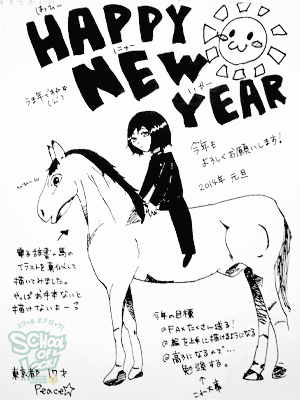 はっぴー
HAPPY
にゅー
NEW
いやー
YEAR
今年も
よろしくお願いします!
2014年 元旦
電子辞書の馬の
イラストを真似して
描いてみました。
やっぱお手本ないと
描けないよーう
スクール オブ ロック!
SCHOOL OF LOCK!
東京都 17才
Peace☆
今年の目標
@FAXたくさん送る!
@絵を上手に描けるようになる
@高3になるので…
勉強する。
これ大事